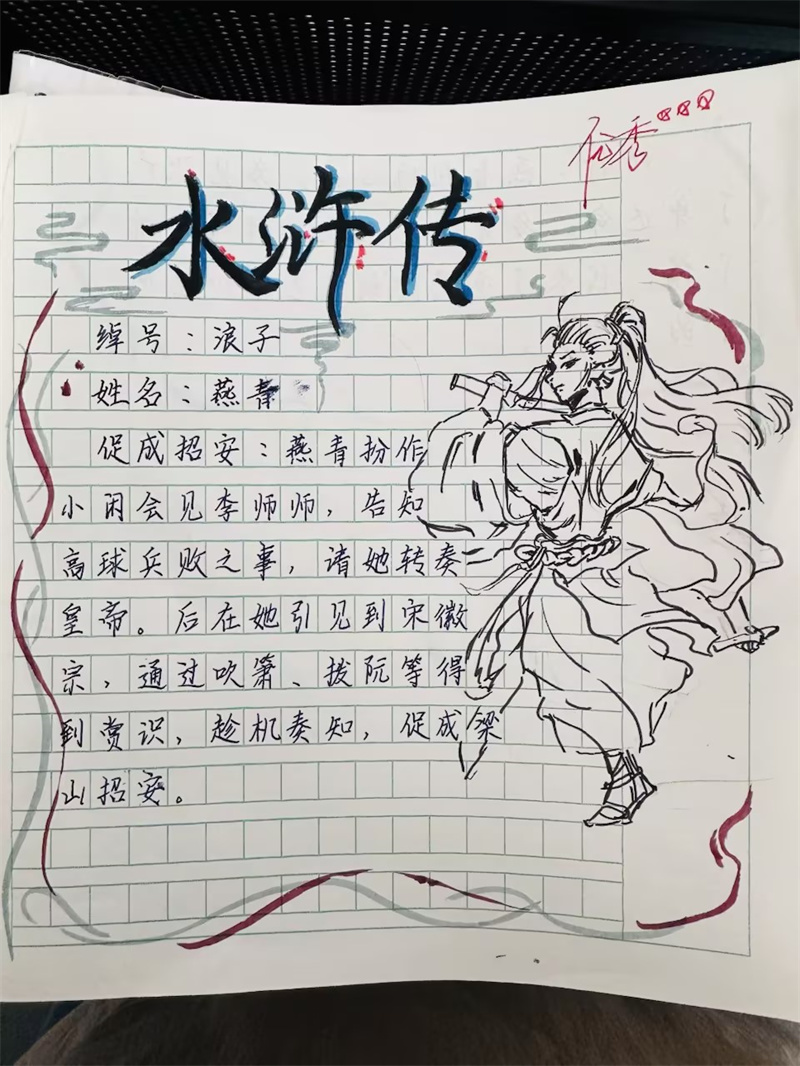 优秀
水浒传
绰号：浪子
姓名：燕青
促成招安：燕青扮作
小闲会见李师师，告知
高球兵败之事，请她转奏
皇帝。后在她引见到宋徽
宗，通过吹箫、拨阮等得
到赏识，趁机奏知，促成梁
山招安。